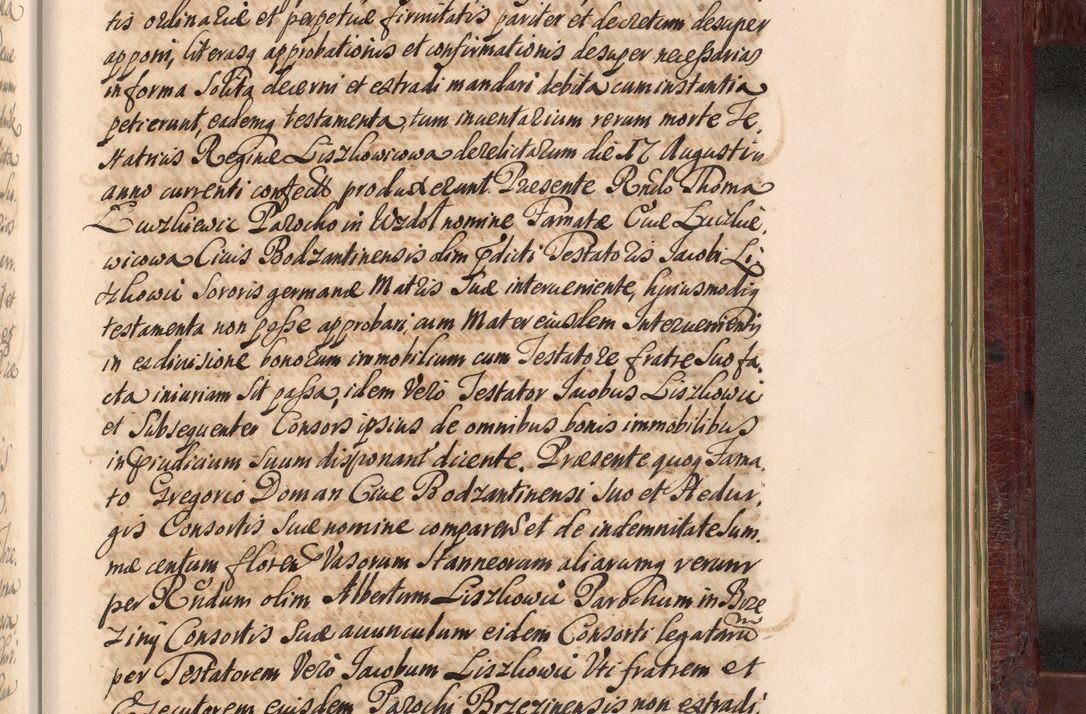 tis ordinariæ et perpetuæ firmitatis pariter et decretum desuper
apponi, literasq approbationis et confirmationis desuper necessarias
in forma Solita decerni et extradi mandari debita cum instantia
petierunt, eademq testamenta, tum inventarium rerum morte Te,
statricis Reginæ Liszkowicowa derelictarum die 17 Augusti
anno currenti confect produxerunt. Præsente Rndo Thoma
Luczkiewic Parocho in Wzdol nomine Famatæ Civæ Luczkie,
wicowa Civis Bodzantinensis olim pdicti Testatoris Jacobi Li,
szkowic Sororis germanæ Matris Suæ interveniente, hujusmodiq
testamenta non posse approbari, cum Mater ejusdem Intervenientis
in exdivisione bonorum immobilium cum Testatore fratre Suo fa,
cta iniuriam Sit passa, idem Vero Testator Jacobus Liszkowic
et Subsequenter Consors ipsius de omnibus bonis immobilibus
in pjudicium Suum disponant dicente. Præsente quoq Fama,
to Gregorio Doman Cive Bodzantinensi Suo et Hedur,
gis Consortis Suæ nomine comparens et de indemnitate Sum,
mæ centum floren Vasorum Stanneorum aliarumq rerum
per Rndum olim Albertum Liszkowic Parochum in Brze
ziny Consortis Suæ avunculum eidem Consorti legatarum
per Testatorem Vero Jacobum Liszkowic Uti fratrem et
Executorem ejusdem Parochi Brzezinensis non extradi,